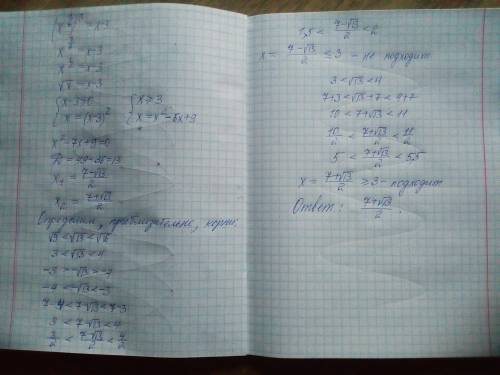 x = x-3
x = x-3
√x = x-3
{ x-3≥0 { x≥3
x = (x-3)² x = x² - 6x+9
x² - 7x+9=0
D = 49-36=13
x₁ = (7-√13)/2
x₂ = (7+√13)/2
Определим, приблизительно, корни:
3 < √13 < 4
-3 > -√13 > -4
-4 < -√13 < -3
7-4 < 7-√13 < 7-3
3 < 7-√13 < 4
3/2 < (7-√13)/2 < 4/2
1,5 < (7-√13)/2 < 2
x = (7-√13)/2 ≤ 3 - не подходит
3 < √13 < 4
7+3 < √13+7 < 4+7
10 < 7+√13 < 11
10/2 < (7+√13)/2 < 11/2
5 < (7+√13)/2 < 5,5
x = (7+√13)/2 ≥ 3 - подходит
Ответ: (7+√13)/2.